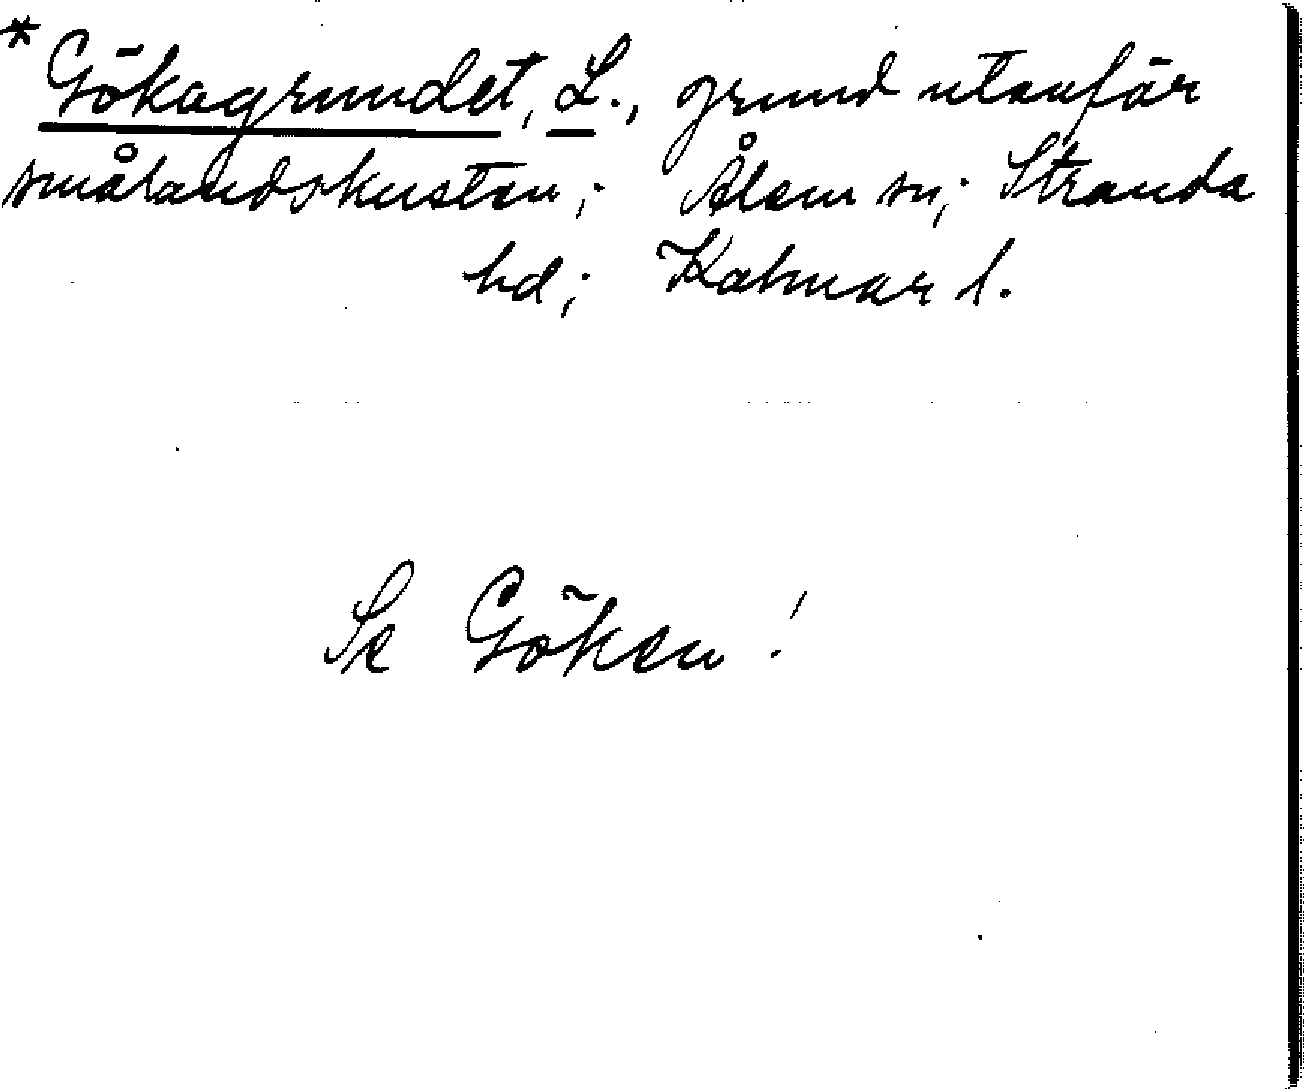 * Gökagrundet, L., grund utanför
smålandskusten; Ålem sn; Stranda
hd; Kalmar l.
Se Göken!